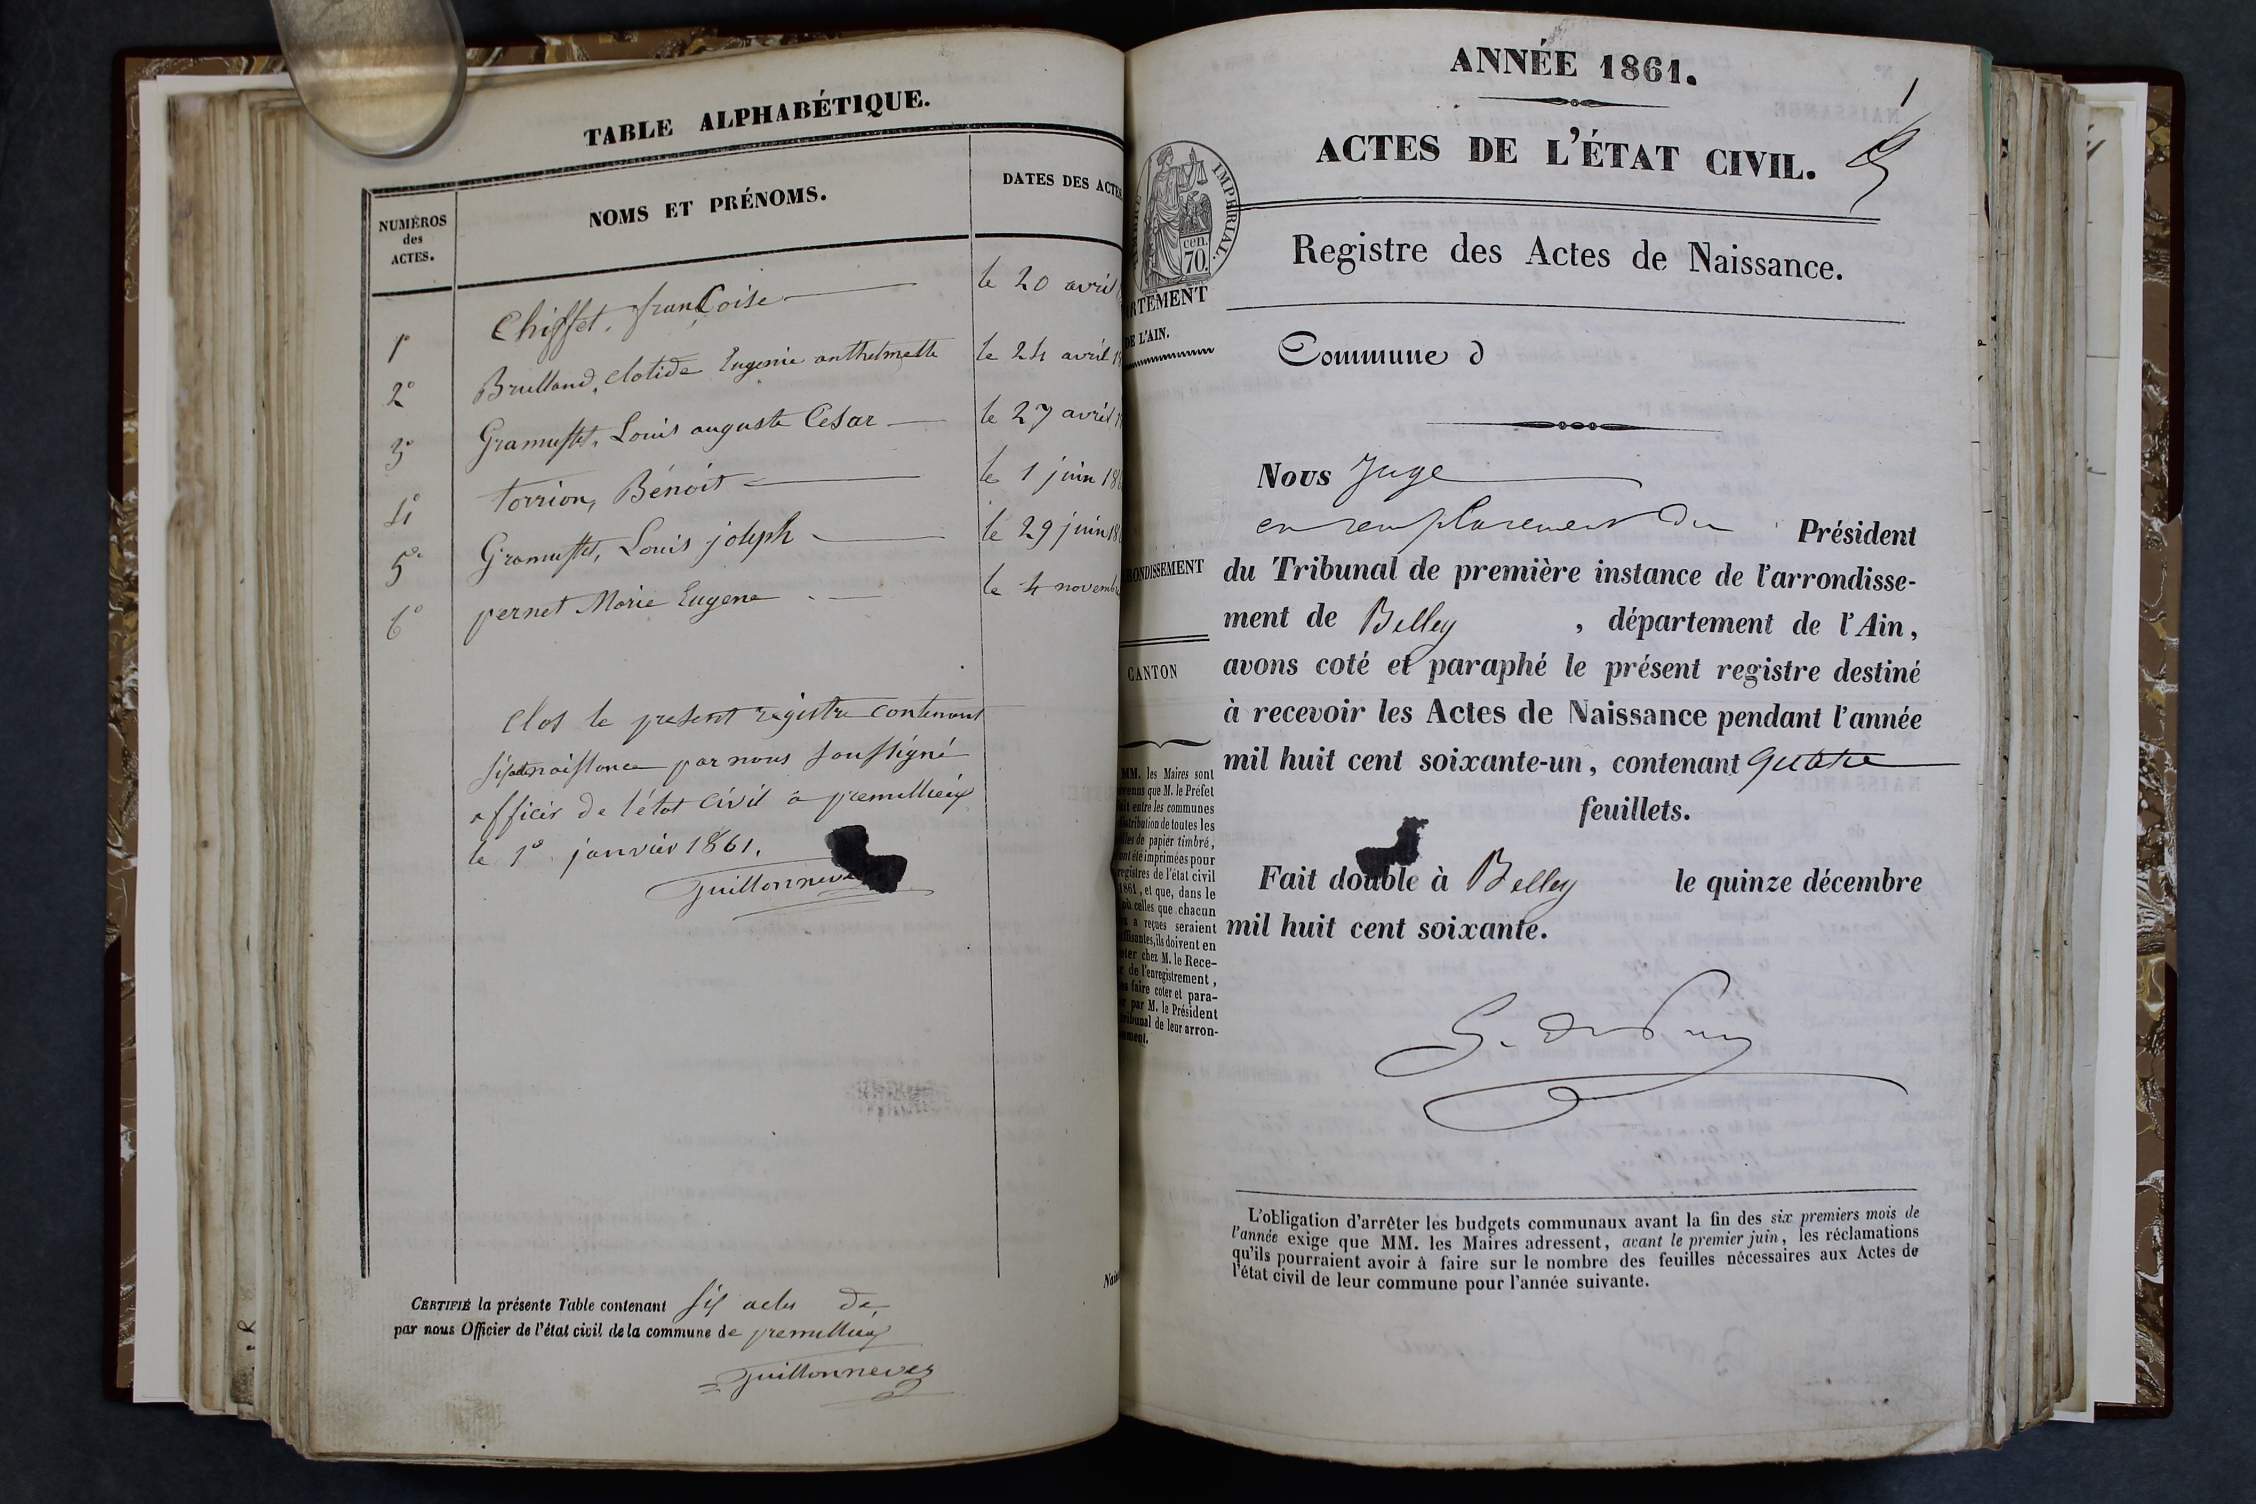 TABLE ALPHABÉTIQUE.
NUMÉROS
des
ACTES.
NOMS ET PRÉNOMS.
DATES DES ACTES
1º Chiffet, françoise le 20 avril
2º Brulland, Clotide Eugenie anthelmette le 24 avril
3º Gramusset, Louis auguste Cesar le 27 avril
4º torrion, Bénoit le 1 juin 186
5º Gramusset, Louis joseph le 29 juin 18
6º pernet Marie Eugene le 4 novembre
Clos le present registre contenant
six naissance par nous soussigné
officier de l'état civil à premillieux
le 1º janvier 1861.
Guillonneve
CERTIFIÉ la présente Table contenant six actes de
par nous Officier de l'état civil de la commune de premillieux
Guillonnevez
ANNÉE 1861.
1
ACTES DE L'ÉTAT CIVIL.
IMPÉRIAL.
cen.
70.
RTEMENT
DE L'AIN.
Registre des Actes de Naissance.
Commune d
Nous Juge
en remplacement du Président
du Tribunal de première instance de l'arrondisse-
ment de Belley , département de l'Ain,
avons coté et paraphé le présent registre destiné
à recevoir les Actes de Naissance pendant l'année
mil huit cent soixante-un, contenant quatre
feuillets.
Fait double à Belley le quinze décembre
mil huit cent soixante.
RONDISSEMENT
CANTON
MM. les Maires sont
venus que M. le Préfet
ait entre les communes
istribution de toutes les
lles de papier timbré,
ont été imprimées pour
registres de l'état civil
1861, et que, dans le
où celles que chacun
x a reçues seraient
ffisantes, ils doivent en
ter chez M. le Rece-
r de l'enregistrement,
es faire coter et para-
r par M. le Président
ribunal de leur arron-
ement.
L'obligation d'arrêter les budgets communaux avant la fin des six premiers mois de
l'année exige que MM. les Maires adressent, avant le premier juin, les réclamations
qu'ils pourraient avoir à faire sur le nombre des feuilles nécessaires aux Actes de
l'état civil de leur commune pour l'année suivante.